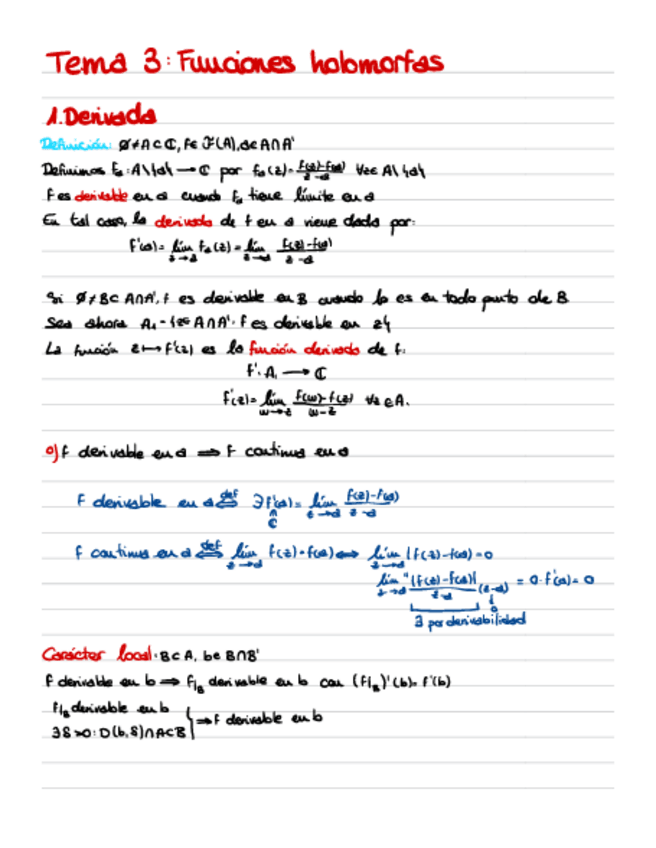 Tema 3: Funciones holomorfas
1. Derivada
Definición: ∅≠A⊂ℂ, f∈ℱ(A), a∈A∩A'
Definimos fₐ: A\{a} → ℂ por fₐ(z)= (f(z)-f(a))/(z-a) ∀z∈A\{a}
f es derivable en a cuando fₐ tiene límite en a
En tal caso, la derivada de f en a viene dada por:
f'(a)= lim_{z→a} fₐ(z)= lim_{z→a} (f(z)-f(a))/(z-a)
Si ∅≠B⊂A∩A', f es derivable en B cuando lo es en todo punto de B
Sea ahora A₁={z∈A∩A': f es derivable en z}
La función z↦f'(z) es la función derivada de f:
f': A₁ → ℂ
f'(z)= lim_{w→z} (f(w)-f(z))/(w-z) ∀z∈A₁
o) f derivable en a ⟹ f continua en a
f derivable en a ⟺^{def} ∃ f'(a)= lim_{z→a} (f(z)-f(a))/(z-a)
∩
ℂ
f continua en a ⟺^{def} lim_{z→a} f(z)=f(a) ⟺ lim_{z→a} |f(z)-f(a)=0
lim_{z→a} " |f(z)-f(a)|/(z-a) (z-a) = 0·f'(a)=0
↓
0
∃ por derivabilidad
Carácter local: B⊂A, b∈B∩B'
f derivable en b ⟹ f|_B derivable en b con (f|_B)'(b)=f'(b)
f|_B derivable en b
∃δ>0: D(b,δ)∩A⊂B } ⟹ f derivable en b